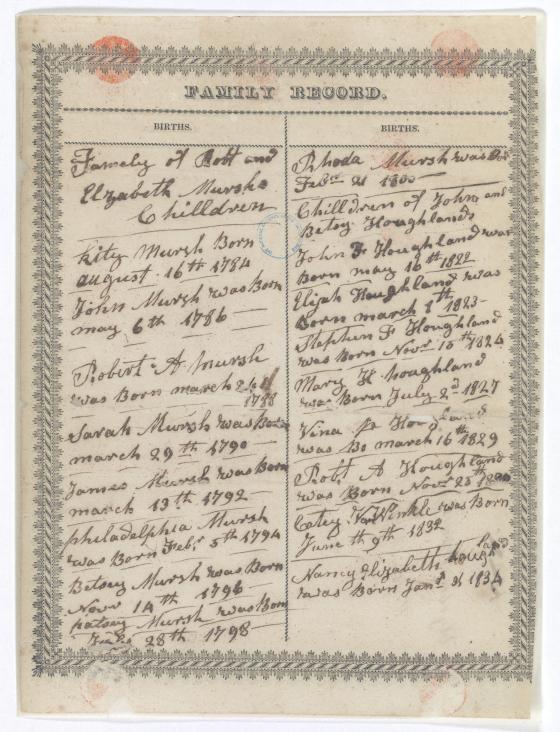 FAMILY RECORD.
BIRTHS.
Famely of Robt and
Elizabeth Mursh
Chilldren
Kity Mursh Born
august 16th 1784
John Mursh was Born
may 6th 1786
Robert A Mursh
was Born march
1788
Sarah Mursh was Born
march 29th 1790
James Mursh was Born
march 13th 1792
philadelphia Mursh
was Born Febr 5th 1794
Betsey Mursh was Born
Novr 14th 1796
patsey Mursh was Born
28th 1798
BIRTHS.
Rhoda Mursh was
Febr 21
Chilldren of John and
Betsy Houghlands
John F Houghland was
Born may 16th 1822
Elijah Houghland was
Born march 1823
Stephen F Houghland
was Born Novr 10th 1824
Mary H houghland
was Born July 2d 1827
Vina
was Bo march 16th 1829
Robt A Houghland
was Born Novr
Catey VanWinkle was Born
June th 9th 1832
Nancy Elizabeth houghland
was Born Janr 1834